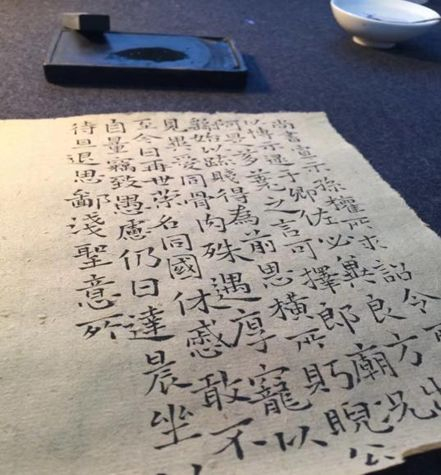 尚書宣示孫權所求詔令
以博示逮于卿佐必冀良方出
阿是芻蕘之言可擇郎廟況
繇始以疏賤得為前恩橫所眄睨公
見異愛同骨肉殊遇厚寵以
至今日再世榮名同國休慼敢不
自量竊致愚慮仍日達晨坐
待旦退思鄙淺聖意所